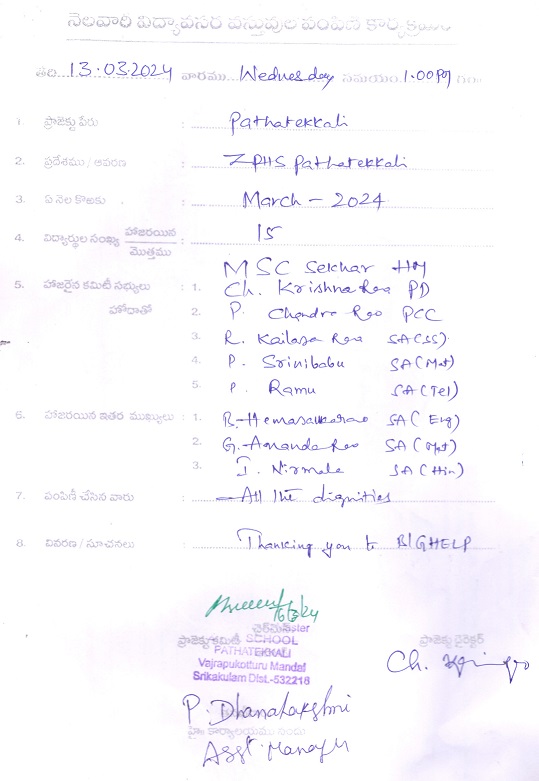 నెలవారి విద్యావసర వస్తువుల పంపిణి కార్యక్రమం
తేది 13.03.2024 వారము Wednesday సమయం 1.00PM గం॥
1. ప్రాజెక్టు పేరు : Pathatekkali
2. ప్రదేశము / ఆవరణ : ZPHS Pathatekkali
3. ఏ నెల కొఱకు : March - 2024
4. విద్యార్థుల సంఖ్య హాజరయిన / మొత్తము : 15
MSC Sekhar HM
5. హాజరైన కమిటీ సభ్యులు : 1. Ch. Krishna Rao PD
హోదాతో 2. P. Chandra Rao PCC
3. R. Kailasa Rao SA(SS)
4. P. Srinibabu SA(Mat)
5. P. Ramu SA(Tel)
6. హాజరయిన ఇతర ముఖ్యులు : 1. B. Hemasankarao SA(Eng)
2. G. Ananda Rao SA
3. I. Nirmala SA(Hin)
7. పంపిణీ చేసిన వారు : All the dignities
8. వివరణ / సూచనలు : Thanking you to BIGHELP
SCHOOL
PATHATEKKALI
Vajrapukotturu Mandal
Srikakulam Dist.-532218
ప్రాజెక్టు డైరెక్టర్
P. Dhanalakshmi
Asst. Manager